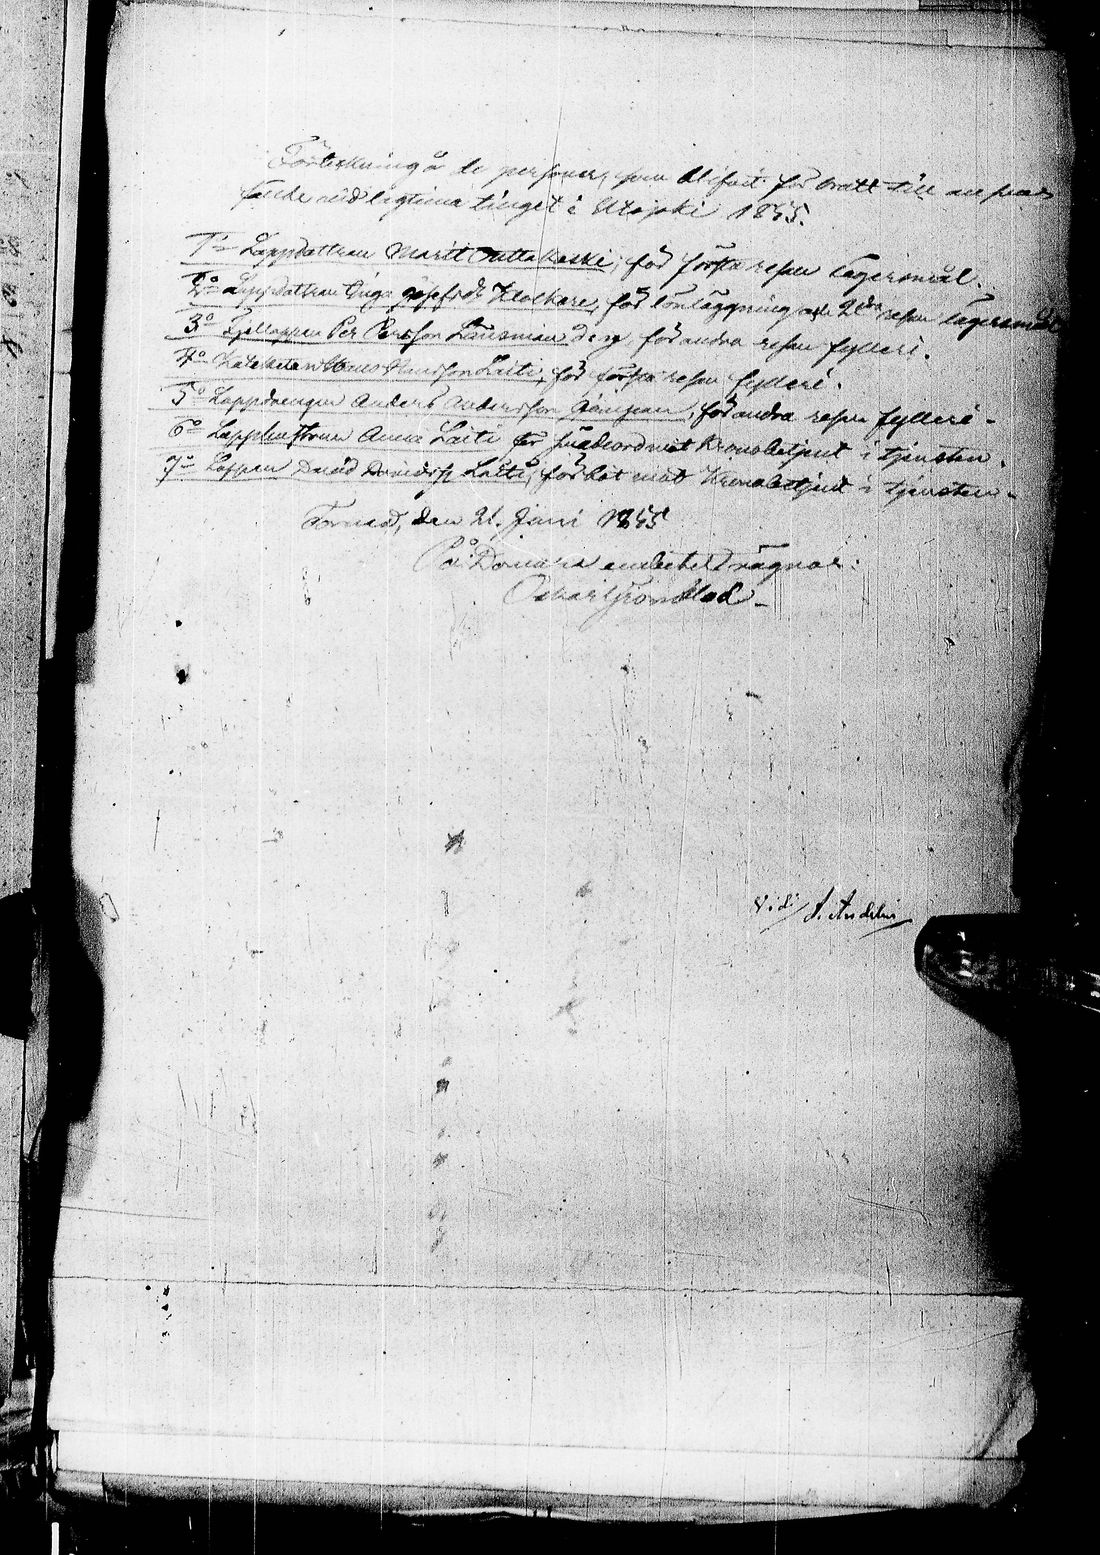 Förteckning å de personer, som blifvit för brott till ansvar
fälde vid lagtima tinget i Utsjoki 1855.
1o Lappdottren Marit Outtakoski, för första resan lägersmål.
2o Lappdottren Inga Josefsdr Klockare, för lönläggning och 2dra resan lägersmål
3o Fjellappen Per Persson Länsman d. y. för andra resan fylleri.
4o Kateketen Hans Hansson Laiti, för första resan fylleri.
5o Lappdrengen Anders Andersson, för andra resan fylleri.
6o Lapphustrun Anna Laiti för smädeord mot Kronobetjent i tjensten.
7o Lappen David Davidss. Laiti, för hot mot Kronobetjent i tjensten.
Torneå, den 21 Juni 1855
På Domare embetets vägnar:
Oskar
Vidi / A. Andelin